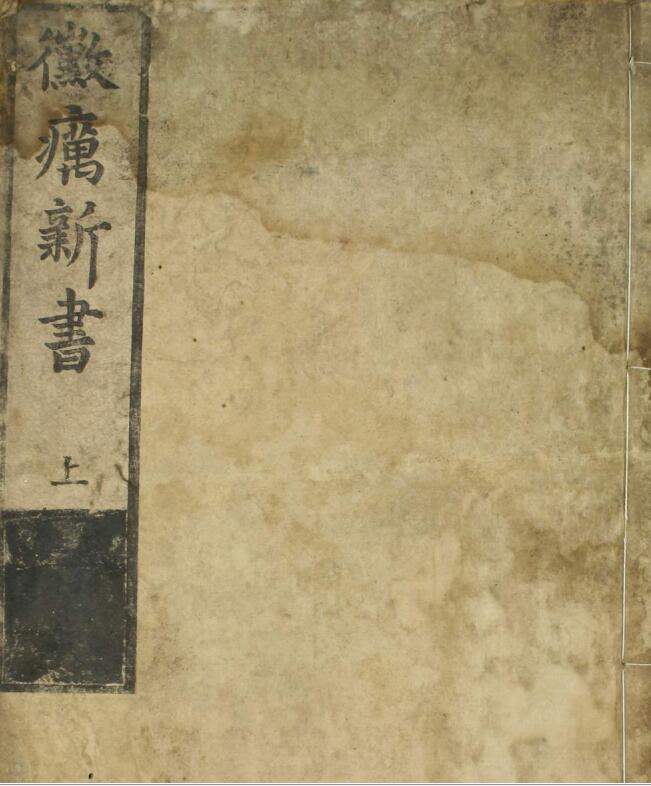 黴癘新書
上